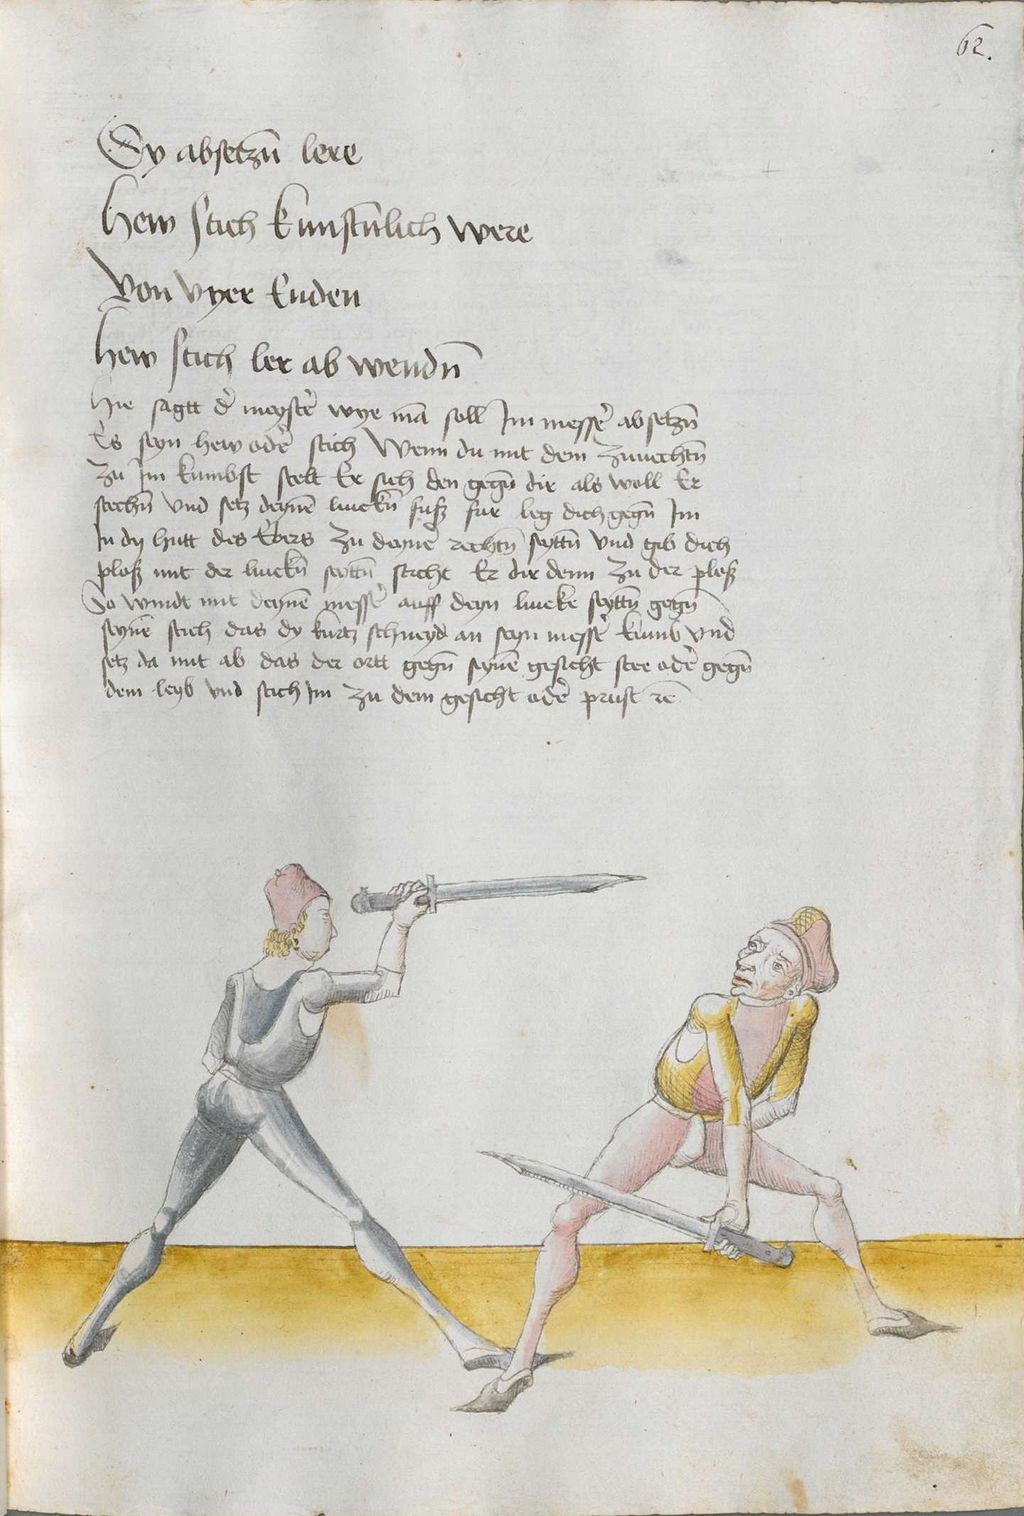 62.
Dy absetzn̄ lere
hew stich kunstn̄lich were
Von Vyer Enden
hew stich ler ab wendn̄
Hie sagtt d' meyst' wye mā soll Im mess' absetzn̄
Es seyn hew od' stich Wenn du mit dem zuuechtn̄
zu Im kumbst stelt Er sich den gegn̄ dir als woll Er
stechn̄ Vnd setz deynē linckn̄ fuß fur leg dich gegn̄ Im
In dy hutt des Ebers zu deynē rechtn̄ seyttn̄ Vnd gib dich
ploß mit der linckn̄ seyttn̄ sticht Er dir denn zu der ploß
So windt mit deynē mess' auff deyn lincke seyttn̄ gegn̄
seynē stich das dy kurtz schneyd an seyn mess' kumb Vnd
setz da mit ab das der ortt gegn̄ seynē gesicht stee od' gegn̄
dem leyb Vnd stich Im zu dem gesicht od' prust rē